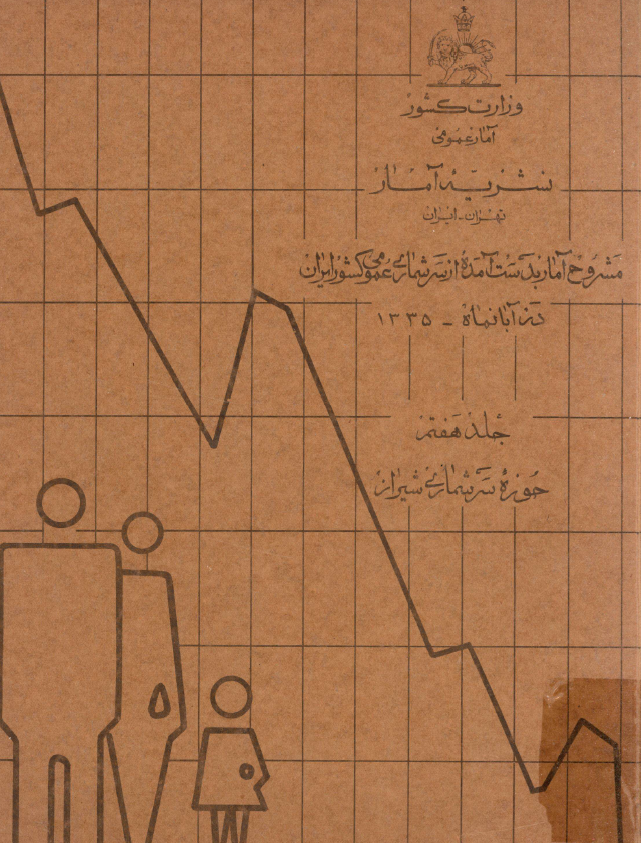 وزارت کشور
آمار عمومی
نشریه آمار
تهران - ایران
مشروح آمار بدست آمده از سرشماری عمومی کشور ایران
در آبانماه - ۱۳۳۵
جلد هفتم
حوزه سرشماری شیراز